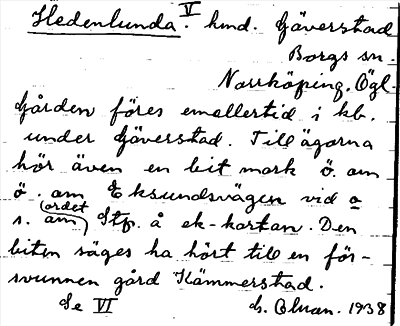 Hedenlunda. V hmd. Gäverstad
Borgs sn.
Norrköping. Ögl.
Gården föres emellertid i kb.
under Gäverstad. Till ägorna
hör även en bit mark ö. om
ö. om Eksundsvägen vid o
s. om (ordet) Stp. å ek-kartan. Den
biten säges ha hört till en för-
svunnen gård Kämmerstad.
Se VI 1938